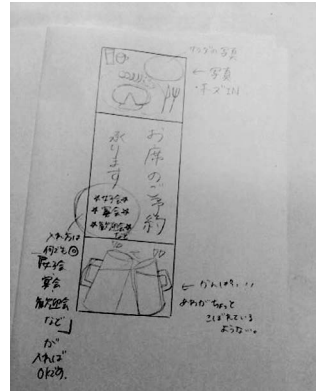 ← 写真
お席のご予約
承ります
*女子会*
*宴会*
*歓迎会*
など
入れ方は
何でも◎
『女子会
宴会
歓迎会
など』
が
入れば
OKです。
← かんぱい!!
あわがちょっと
こぼれている
ような。